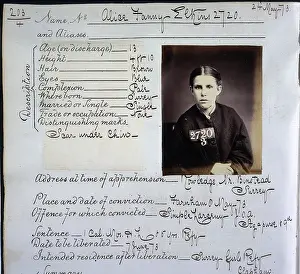 203
4
24 May 73
Name, No. Alice Fanny Elkins 2720.
and Aliases.
Description
Age (on discharge) 13
Height 4 ft 10
Hair Brown
Eyes Blue
Complexion Pale
Where born Surrey
Married or Single Single
Trade or occupation
Distinguishing marks
Scar under Chin
2720
3
Address at time of apprehension Nr. Binstead
Surrey
Place and date of conviction Farnham 8 May 73
Offence for which convicted Simple Larceny
Sentence 1 Cal. Mo. & 5 yrs.
Date to be liberated 7 June 73
Intended residence after liberation Surrey